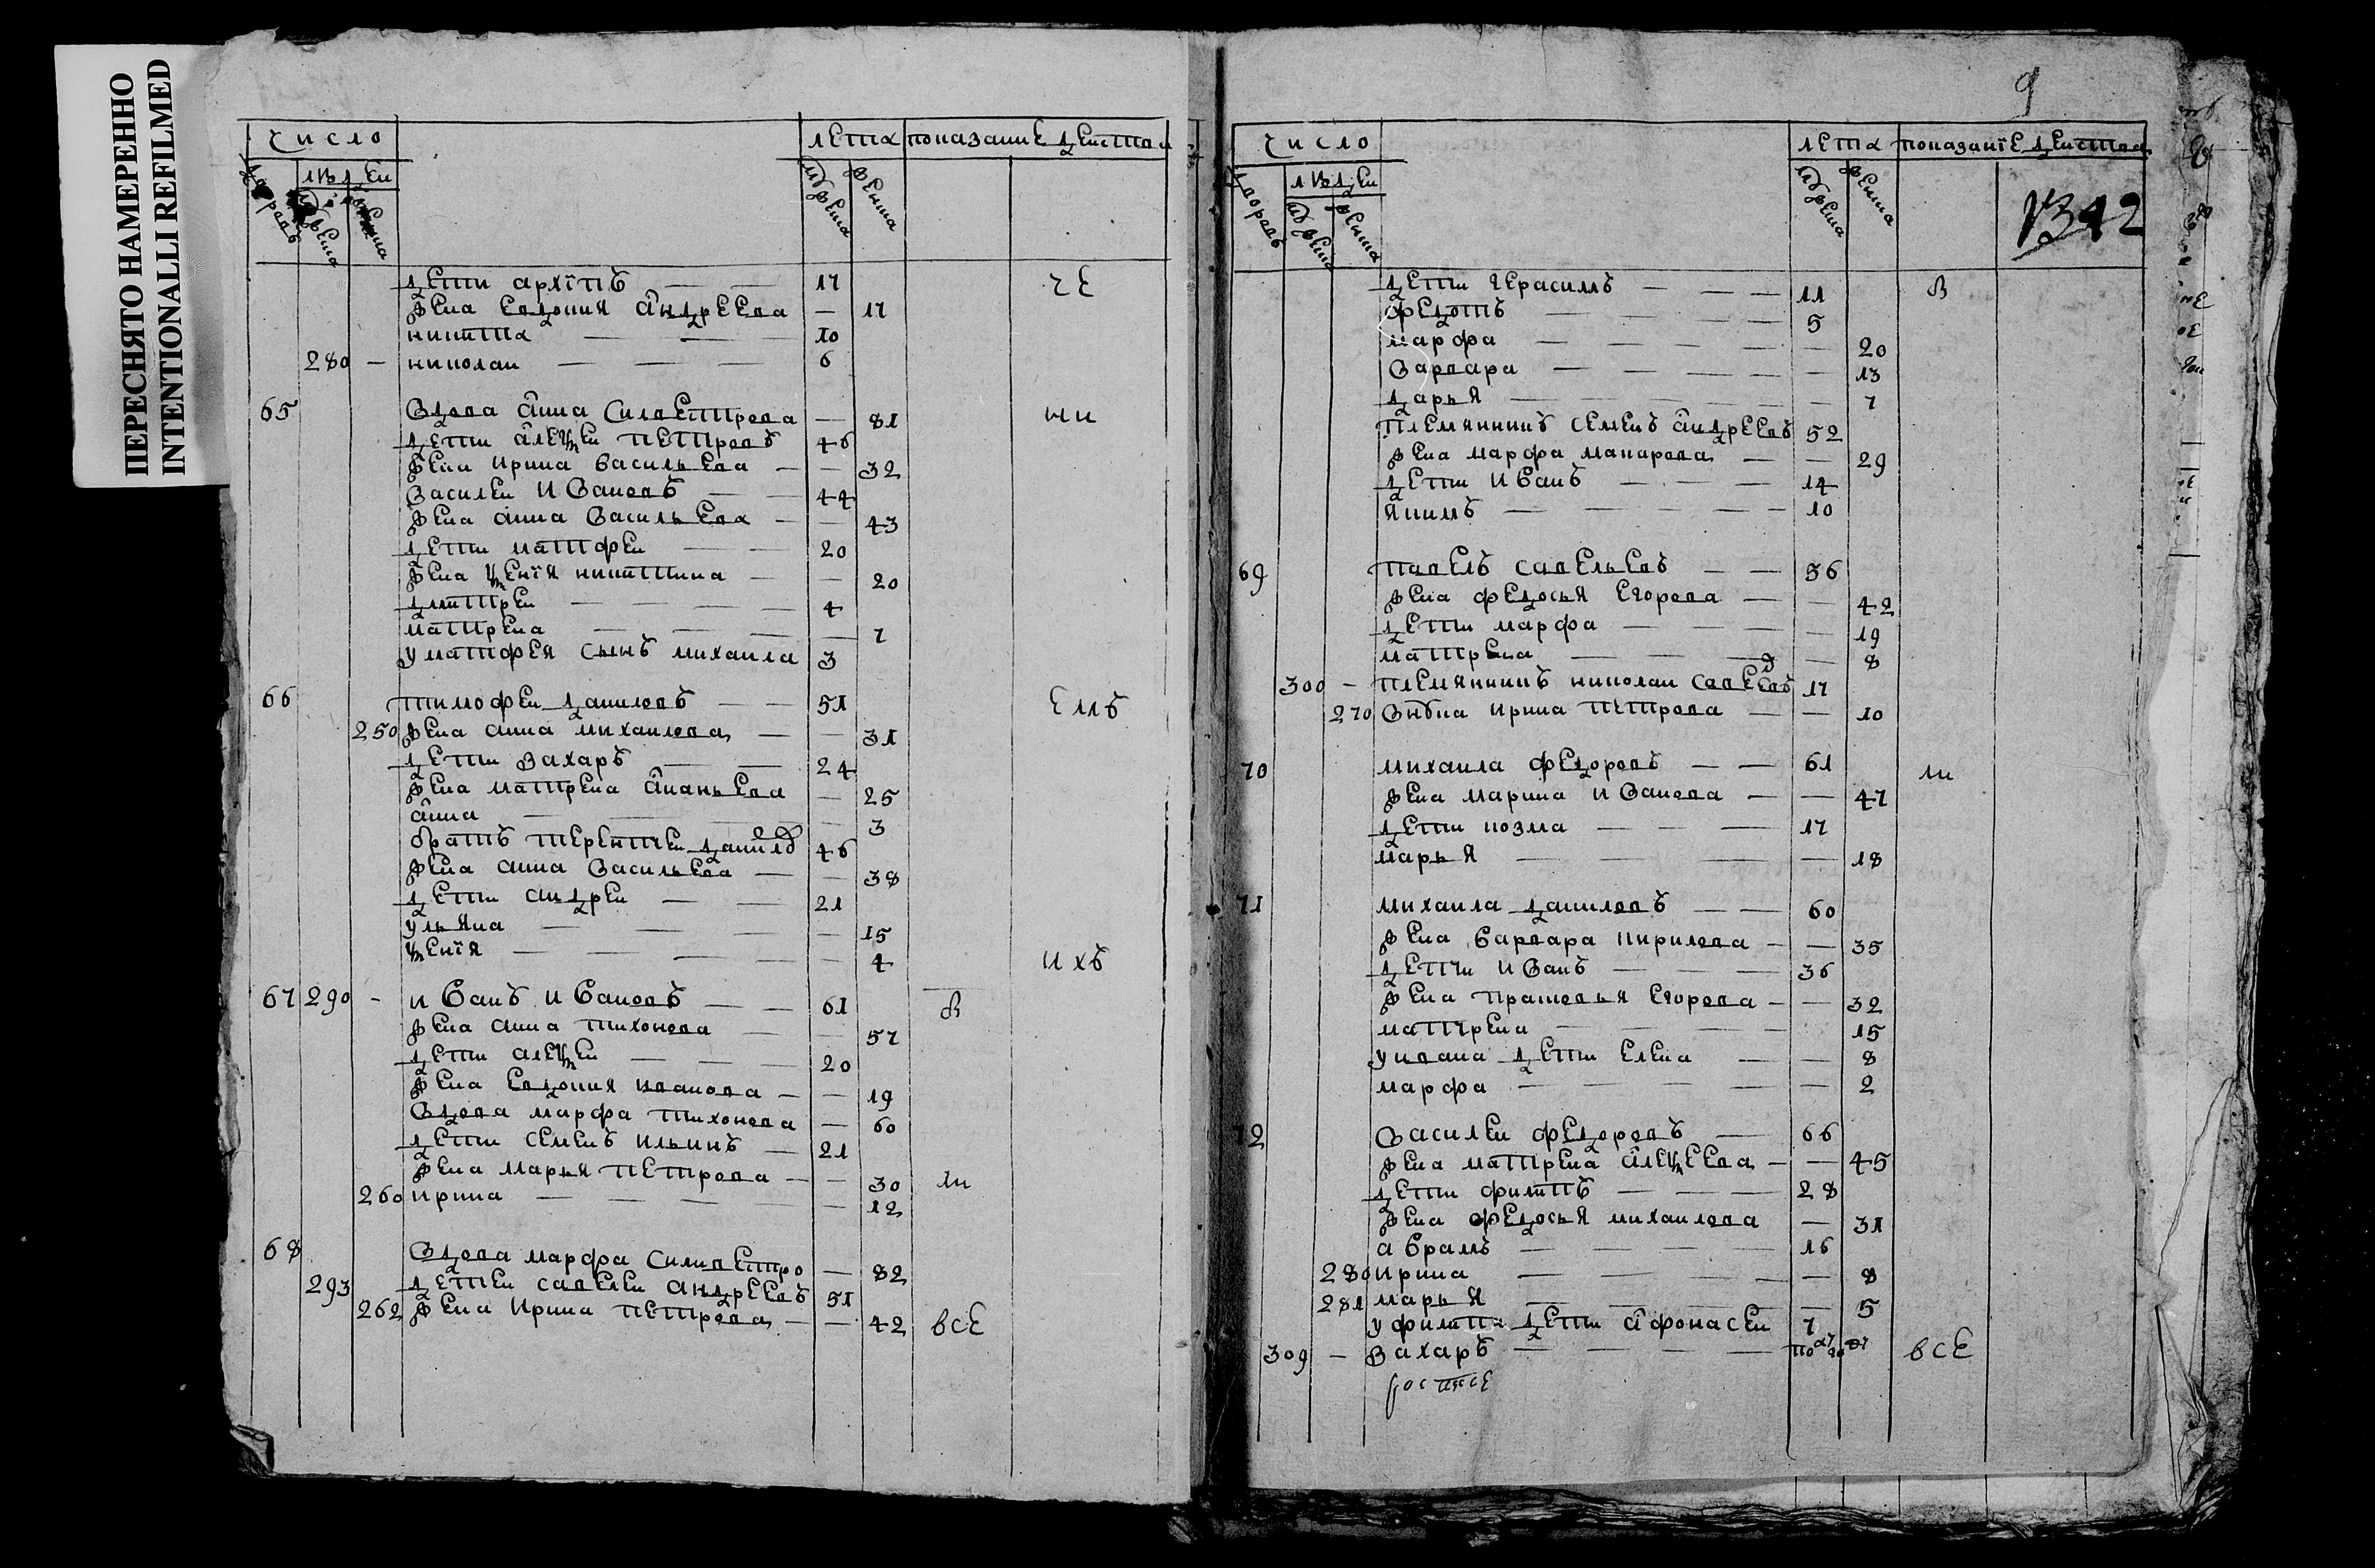 ПЕРЕСНЯТО НАМЕРЕННО
INTENTIONALLI REFILMED
число лета показание действа
людей
дворовъ мужеска женска мужеска женска
дети архïпъ — — 17 че
жена Евдокия андреева — 17
никита — — 10
280 - николаи — — — 6
65 Вдова анна Силвестрова — 81 ни
дети алеѯеи петровъ 46
жена ирина васильева — — 32
Василеи Ивановъ — — 44
жена анна Васильева — — 43
дети матфеи — — 20
жена ѯенïя никитина — — 20
дмитреи — — — — 4
матрена — — — — 7
у матфея сынъ михаила 3
66 тимофеи даниловъ — 51 емъ
250 жена анна михаилова — — 31
дети Захаръ — — 24
жена матрена ананьева — 25
анна — — — — 3
братъ терентеи данилов 46
жена анна Васильева — — 38
дети андреи — — 21
ульяна — — — — 15
ѯенïя — — — — 4
ихъ
67 290 - Иванъ Ивановъ — — 61 в
жена анна тихонова — — 57
дети алеѯеи — — 20
жена Евдокия иванова — — 19
Вдова марфа тихонова — 60
дети семенъ ильинъ — 21
жена марья петрова — — 30 ли
260 ирина — — — — 12
68 Вдова марфа Силивестро — 82
293 детеи савелеи андреевъ 51
262 жена ирина петрова — — 42 все
9
число лета показанïе действа
людей
дворовъ мужеска женска мужеска женска
1342
дети герасимъ — — — 11 в
федотъ — — — — 5
марфа — — — — — 20
Варвара — — — — — 13
дарья — — — — — 7
племянникъ семенъ андреевъ 52
жена марфа макарова — — 29
дети Иванъ — — — 14
якимъ — — — — — 10
69 павелъ савельевъ — — 56
жена федосья Егорова — — 42
дети марфа — — — — 19
матрена — — — — 8
300 - племянникъ николаи савеевъ 17
270 Внука ирина петрова — — 10
70 михаила федоровъ — — 61 ли
жена марина Иванова — — 47
дети козма — — — 17
марья — — — — 18
71 михаила даниловъ — — 60
жена Варвара кирилова — — 35
дети Иванъ — — — 36
жена прасковья Егорова — — 32
матрена — — — — 15
у ивана дети Елена — — 8
марфа — — — — — 2
72 Василеи федоровъ — 66
жена матрена алеѯеева — — 45
дети филипъ — — — 28
жена федосья михаилова — 31
аврамъ — — — — 16
280 ирина — — — — — 8
281 марья — — — — 5
у филипа дети афонасеи 7
309 - Захаръ — — — — все